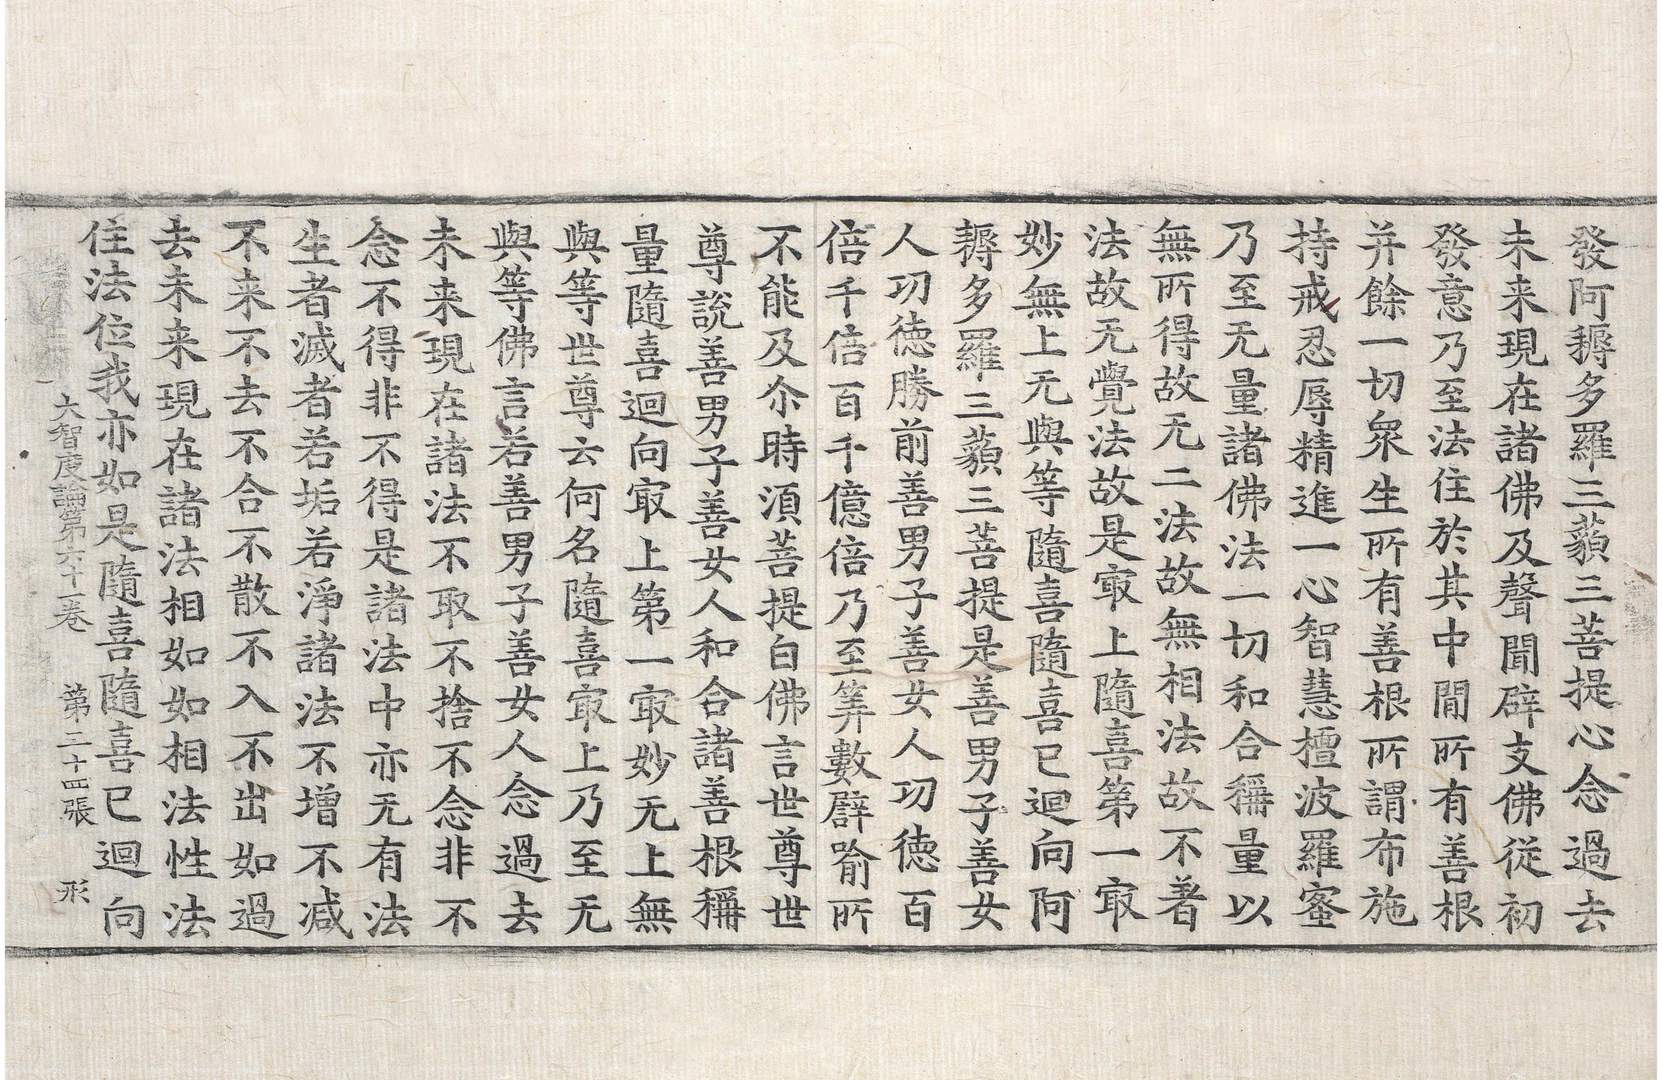 發阿耨多羅三藐三菩提心念過去
未來現在諸佛及聲聞辟支佛從初
發意乃至法住於其中閒所有善根
并餘一切衆生所有善根所謂布施
持戒忍辱精進一心智慧檀波羅蜜
乃至无量諸佛法一切和合稱量以
無所得故无二法故無相法故不著
法故无覺法故是㝡上隨喜第一㝡
妙無上无與等隨喜隨喜已迴向阿
耨多羅三藐三菩提是善男子善女
人功德勝前善男子善女人功德百
倍千倍百千億倍乃至筭數譬喻所
不能及尒時須菩提白佛言世尊世
尊說善男子善女人和合諸善根稱
量隨喜迴向㝡上第一㝡妙无上無
與等世尊云何名隨喜㝡上乃至无
與等佛言若善男子善女人念過去
未來現在諸法不取不捨不念非不
念不得非不得是諸法中亦无有法
生者滅者若垢若淨諸法不增不減
不来不去不合不散不入不出如過
去未来現在諸法相如如相法性法
住法位我亦如是隨喜隨喜已迴向
大智度論第六十一卷　第三十四張　形